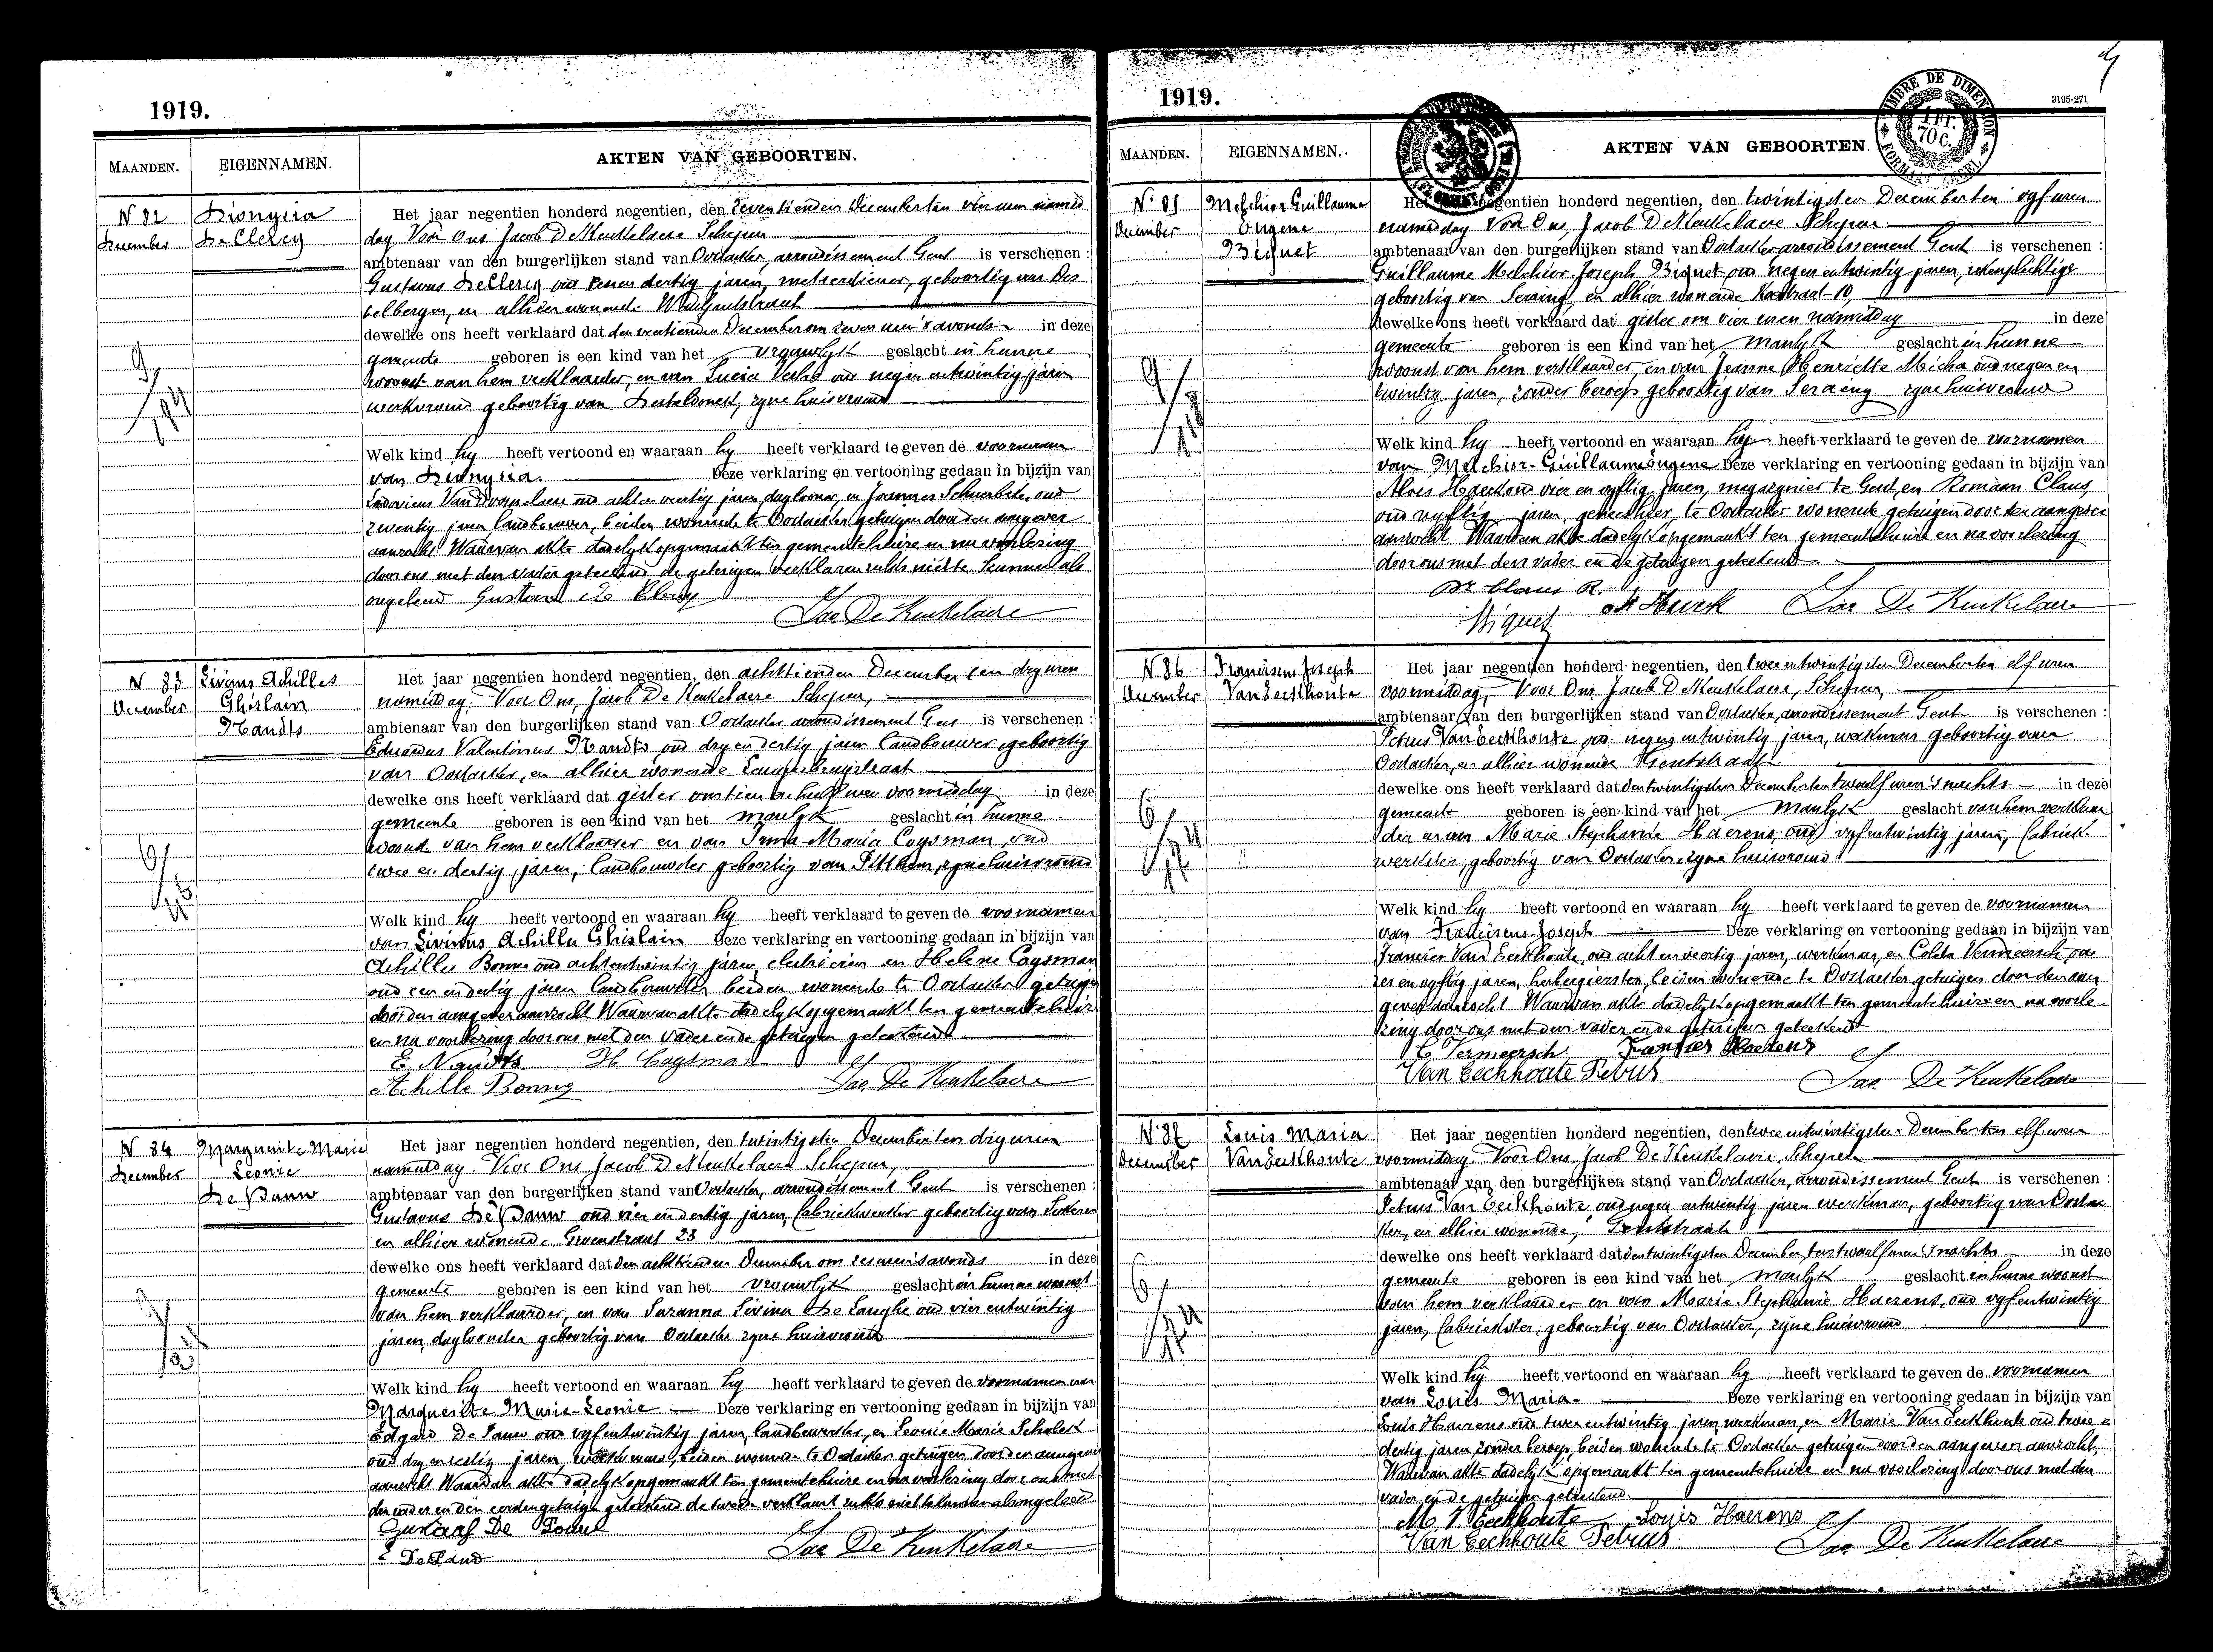 1919.
MAANDEN.
EIGENNAMEN.
AKTEN VAN GEBOORTEN.
N 82
December
Dionysia
De Clercq
Het jaar negentien honderd negentien, den zeventienden December ten vier uren namid
dag Voor Ons Jacob De Keukelaere Schepen
ambtenaar van den burgerlijken stand van Oostacker, arrondissement Gent is verschenen :
Gustavus De Clercq oud een en dertig jaren, metserdiener, geboortig van Des
telbergen, en alhier wonende
dewelke ons heeft verklaard dat den veertienden December om zeven uren 's avonds in deze
gemeente geboren is een kind van het vrouwlyk geslacht in hunne
woonst van hem verklaarder, en van Lucia oud negen en twintig jaren
werkvrouw geboortig van Desteldonck, zyne huisvrouw
Welk kind hy heeft vertoond en waaraan hy heeft verklaard te geven de voornaam
van Dionysia. Deze verklaring en vertooning gedaan in bijzijn van
Ludovicus oud acht en veertig jaren daglooner, en Joannes oud
zeventig jaren landbouwer, beiden wonende te Oostacker getuigen door den aangever
aanzocht Waarvan akte dadelyk opgemaakt ten gemeentehuize en na voorlezing
door ons met den vader geteekend de getuigen verklaren zulks niet te kunnen als
ongeleerd Gustave De Clercq
Jac De Keukelaere
N 83
December
Livinus Achilles
Ghislain
Nandts
Het jaar negentien honderd negentien, den achttienden December ten dry uren
namiddag. Voor Ons, Jacob De Keukelaere Schepen,
ambtenaar van den burgerlijken stand van Oostacker arrondissement Gent is verschenen :
Eduardus Valentinus Nandts oud dry en dertig jaren landbouwer geboortig
van Oostacker, en alhier wonende
dewelke ons heeft verklaard dat gister om tien en half uren voormiddag in deze
gemeente geboren is een kind van het manlyk geslacht in hunne
woonst van hem verklaarder en van Irma Maria Coysman, oud
twee en dertig jaren, landbouwster geboortig van Pitthem, zyne huisvrouw
Welk kind hy heeft vertoond en waaraan hy heeft verklaard te geven de voornamen
van Livinus Achilles Ghislain Deze verklaring en vertooning gedaan in bijzijn van
Achilles Bonne oud acht en twintig jaren, electricien en Helene Coysman
oud een en dertig jaren landbouwster beiden wonende te Oostacker getuigen
door den aangever aanzocht Waarvan akte dadelyk opgemaakt ten gemeentehuize
en na voorlezing door ons met den vader en de getuigen geteekend
E. Nandts H Coysman
Achille Bonne Jac De Keukelaere
N 84
December
Marguerite Marie
Leonie
De Pauw
Het jaar negentien honderd negentien, den twintigsten December ten dry uren
namiddag. Voor Ons Jacob De Keukelaere Schepen,
ambtenaar van den burgerlijken stand van Oostacker, arrondissement Gent is verschenen :
Gustavus De Pauw oud vier en dertig jaren, fabriekwerker geboortig van Lokeren
en alhier wonende Groenstraat 23
dewelke ons heeft verklaard dat den achttienden December om zes uren 's avonds in deze
gemeente geboren is een kind van het vrouwlyk geslacht in hunne woonst
van hem verklaarder, en van Suzanna Livina De Langhe oud vier en twintig
jaren, daglooner geboortig van Oostacker zyne huisvrouw
Welk kind hy heeft vertoond en waaraan hy heeft verklaard te geven de voornamen van
Marguerite Marie-Leonie Deze verklaring en vertooning gedaan in bijzijn van
Edgard De Pauw oud vyf en twintig jaren, landbewerker, en Leonie Marie
oud dry en zestig jaren, werkvrouw, beiden wonende te Oostacker getuigen door den aangever
aanzocht Waarvan akte dadelyk opgemaakt ten gemeentehuize en na voorlezing door ons met
den vader en den eersten getuige geteekend de tweede verklaart zulks niet te kunnen als ongeleerd
Gustaaf De Pauw
E De Pauw Jac De Keukelaere
1919.
3195-271
TIMBRE DE DIMENSION
1 FR.
70 C.
MAANDEN.
EIGENNAMEN.
AKTEN VAN GEBOORTEN.
N. 85
December
Melchior Guillaume
Eugene
Biquet
Het jaar negentien honderd negentien, den twintigsten December ten vyf uren
namiddag Voor Ons Jacob De Keukelaere Schepen
ambtenaar van den burgerlijken stand van Oostacker arrondissement Gent is verschenen :
Guillaume Melchior Joseph Biquet oud negen en twintig jaren, rekenplichtige
geboortig van Seraing en alhier wonende 10,
dewelke ons heeft verklaard dat gister om vier uren namiddag in deze
gemeente geboren is een kind van het manlyk geslacht in hunne
woonst van hem verklaarder, en van Jeanne Henriette Micha oud negen en
twintig jaren, zonder beroep geboortig van Seraing zyne huisvrouw
Welk kind hy heeft vertoond en waaraan hy heeft verklaard te geven de voornamen
van Melchior-Guillaume Eugene Deze verklaring en vertooning gedaan in bijzijn van
Aloïs Haeck oud vier en vyftig jaren, magazynier te Gent, en Romaan Claus,
oud vyftig jaren, geneesheer, te Oostacker wonende getuigen door den aangever
aanzocht Waarvan akte dadelyk opgemaakt ten gemeentehuize en na voorlezing
door ons met den vader en de getuigen geteekend
Dr Claus R.
A Haeck Jac De Keukelaere
Biquet
N 86
December
Franciscus Joseph
Van Eeckhoute
Het jaar negentien honderd negentien, den twee en twintigsten December ten elf uren
voormiddag, Voor Ons Jacob De Keukelaere, Schepen,
ambtenaar van den burgerlijken stand van Oostacker, arrondissement Gent is verschenen :
Petrus Van Eeckhoute oud negen en twintig jaren, werkman geboortig van
Oostacker, en alhier wonende Gentstraat
dewelke ons heeft verklaard dat den twintigsten December ten twaalf uren 's nachts in deze
gemeente geboren is een kind van het manlyk geslacht van hem verklaar
der en van Marie Stephanie Haerens, oud vyf en twintig jaren, fabriek
werkster, geboortig van Oostacker, zyne huisvrouw
Welk kind hy heeft vertoond en waaraan hy heeft verklaard te geven de voornamen
van Franciscus-Joseph Deze verklaring en vertooning gedaan in bijzijn van
Francies Van Eeckhoute, oud acht en veertig jaren, werkman, en Coleta Vermeersch oud
zes en vyftig jaren, herbergierster, beiden wonende te Oostacker getuigen door den aan
gever aanzocht Waarvan akte dadelyk opgemaakt ten gemeentehuize en na voorle
zing door ons met den vader en de getuigen geteekend
C Vermeersch Francies Haerens
Van Eeckhoute Petrus Jac De Keukelaere
N. 87
December
Louis Maria
Van Eeckhoute
Het jaar negentien honderd negentien, den twee en twintigsten December ten elf uren
voormiddag. Voor Ons Jacob De Keukelaere, Schepen
ambtenaar van den burgerlijken stand van Oostacker, arrondissement Gent is verschenen :
Petrus Van Eeckhoute oud negen en twintig jaren werkman, geboortig van Oostac
ker, en alhier wonende, Gentstraat
dewelke ons heeft verklaard dat den twintigsten December ten twaalf uren 's nachts in deze
gemeente geboren is een kind van het manlyk geslacht in hunne woonst
van hem verklaarder en van Marie Stephanie Haerens, oud vyf en twintig
jaren, fabriekster, geboortig van Oostacker, zyne huisvrouw
Welk kind hy heeft vertoond en waaraan hy heeft verklaard te geven de voornamen
van Louis Maria. Deze verklaring en vertooning gedaan in bijzijn van
Louis Haerens oud twee en twintig jaren, werkman, en Marie Van Eeckhoute oud twee e
dertig jaren, zonder beroep, beiden wonende te Oostacker getuigen door den aangever aanzocht,
Waarvan akte dadelyk opgemaakt ten gemeentehuize en na voorlezing door ons met den
vader en de getuigen geteekend.
M. V. Eeckhoute Louis Haerens
Van Eeckhoute Petrus Jac De Keukelaere